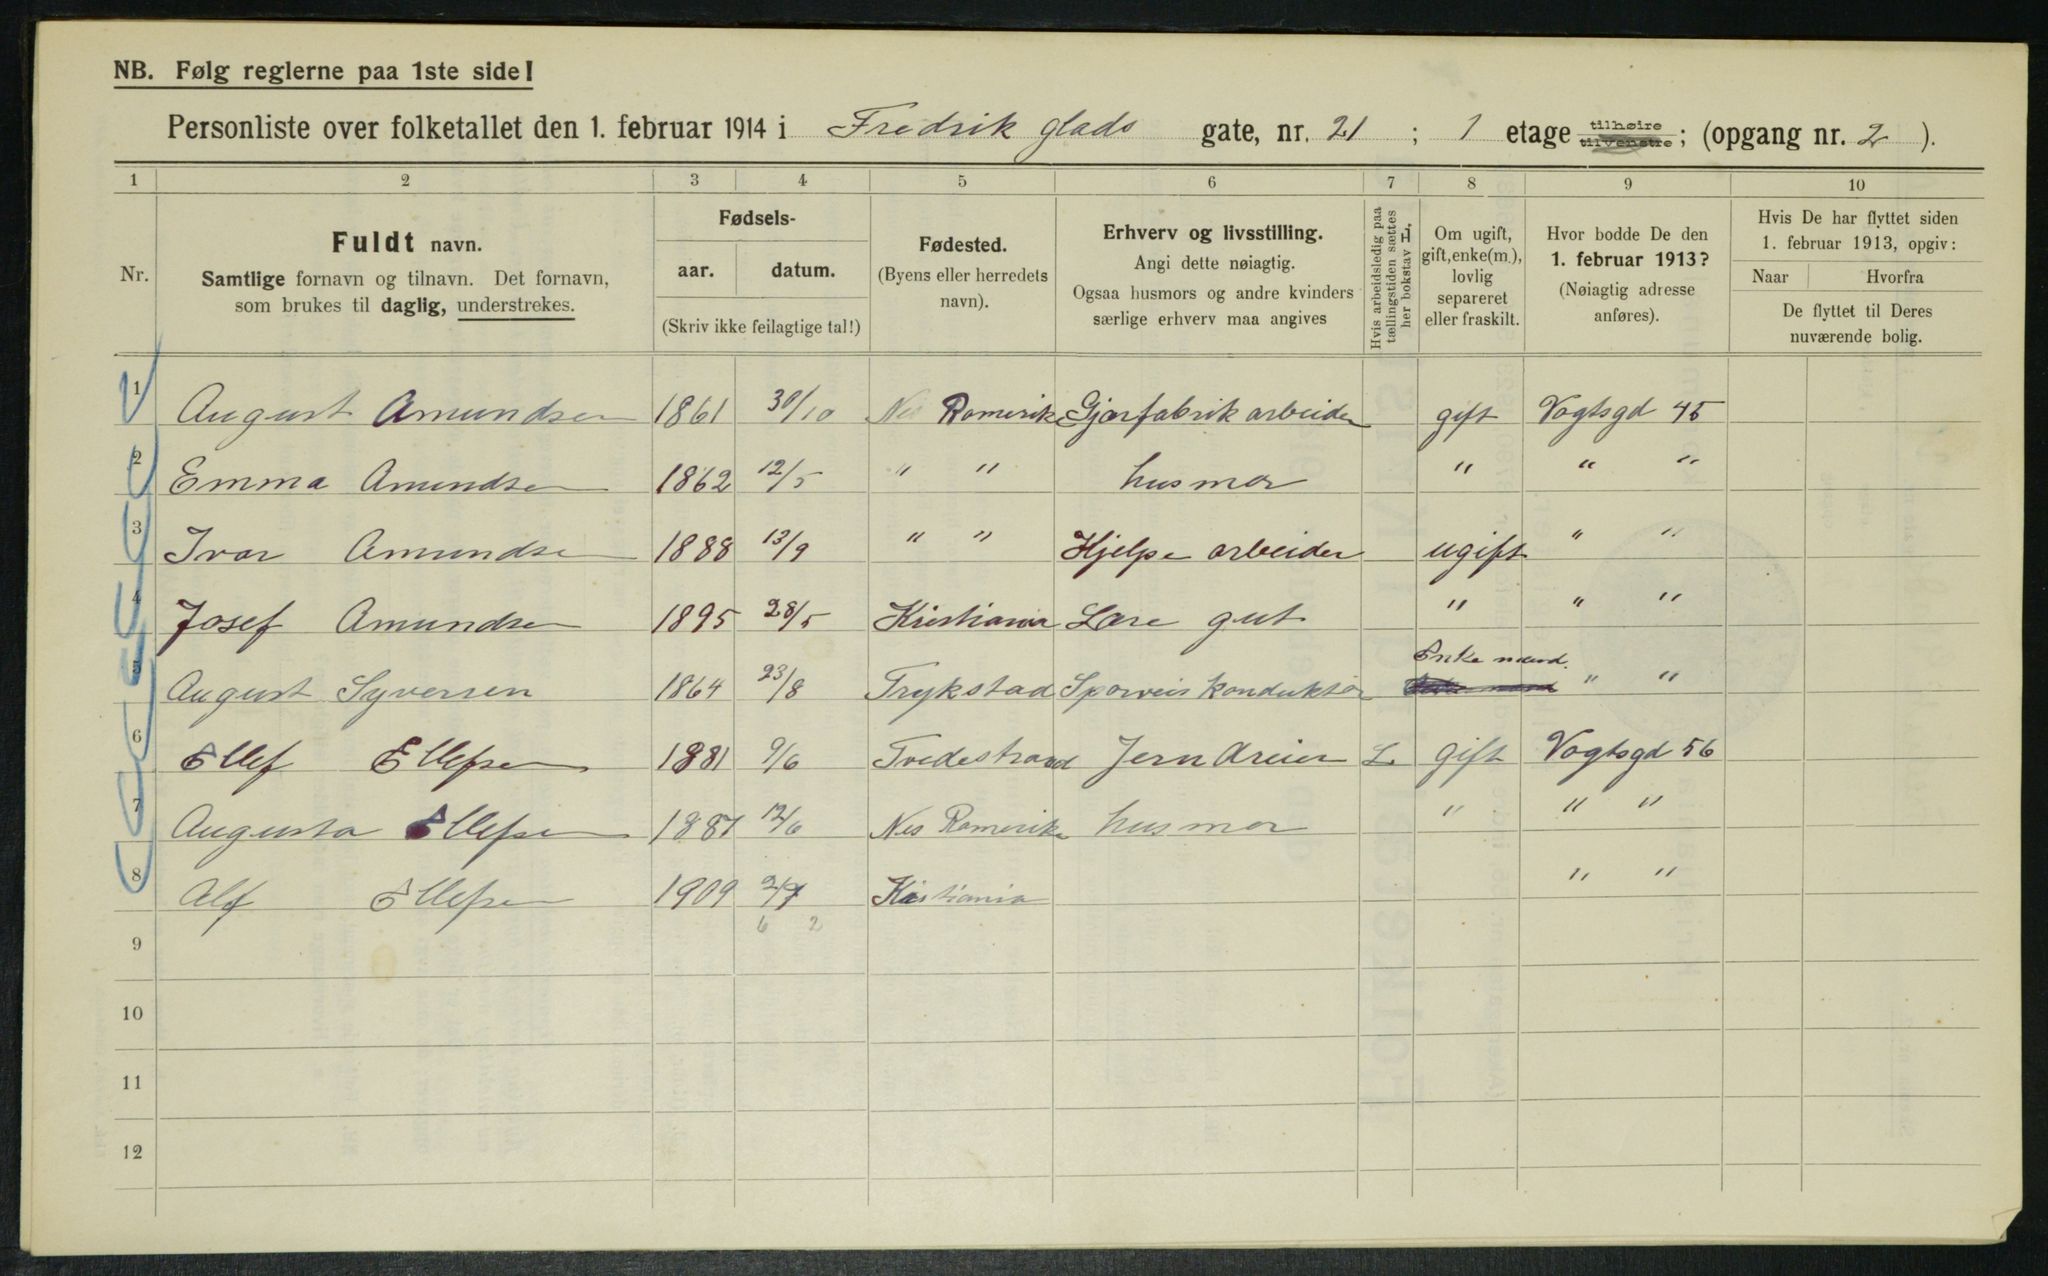 NB. Følg reglerne paa 1ste side!
Personliste over folketallet den 1. februar 1914 i Fredrik glads gate, nr. 21 ; 1 etage tilhøire tilvenstre; (opgang nr. 2 ).
1 2 3 4 5 6 7 8 9 10
Nr.
Fuldt navn.
Samtlige fornavn og tilnavn. Det fornavn,
som brukes til daglig, understrekes.
Fødsels-
aar. datum.
(Skriv ikke feilagtige tal!)
Fødested.
(Byens eller herredets
navn).
Erhverv og livsstilling.
Angi dette nøiagtig.
Ogsaa husmors og andre kvinders
særlige erhverv maa angives
Hvis arbeidsledig paa
tællingstiden sættes
her bokstav L.
Om ugift,
gift, enke(m.),
lovlig
separeret
eller fraskilt.
Hvor bodde De den
1. februar 1913?
(Nøiagtig adresse
anføres).
Hvis De har flyttet siden
1. februar 1913, opgiv:
Naar Hvorfra
De flyttet til Deres
nuværende bolig.
1 August Amundsen 1861 30/10 Nes Romerike Gjærfabrik arbeider gift Vogtsgd 45
2 Emma Amundsen 1862 12/5 " " husmor " " "
3 Ivar Amundsen 1888 13/9 " " Hjelpe arbeider ugift " "
4 Josef Amundsen 1895 28/5 Kristiania Lære gut " " "
5 August Syversen 1864 23/8 Trykstad Sporveis konduktør Enke mand. " "
6 Ellef Ellefsen 1881 9/6 Tvedestrand Jern dreier L. gift Vogtsgd 56
7 Augusta Ellefsen 1887 12/6 Nes Romerike husmor " " "
8 Alf Ellefsen 1909 Kristiania " "
6 2
9
10
11
12